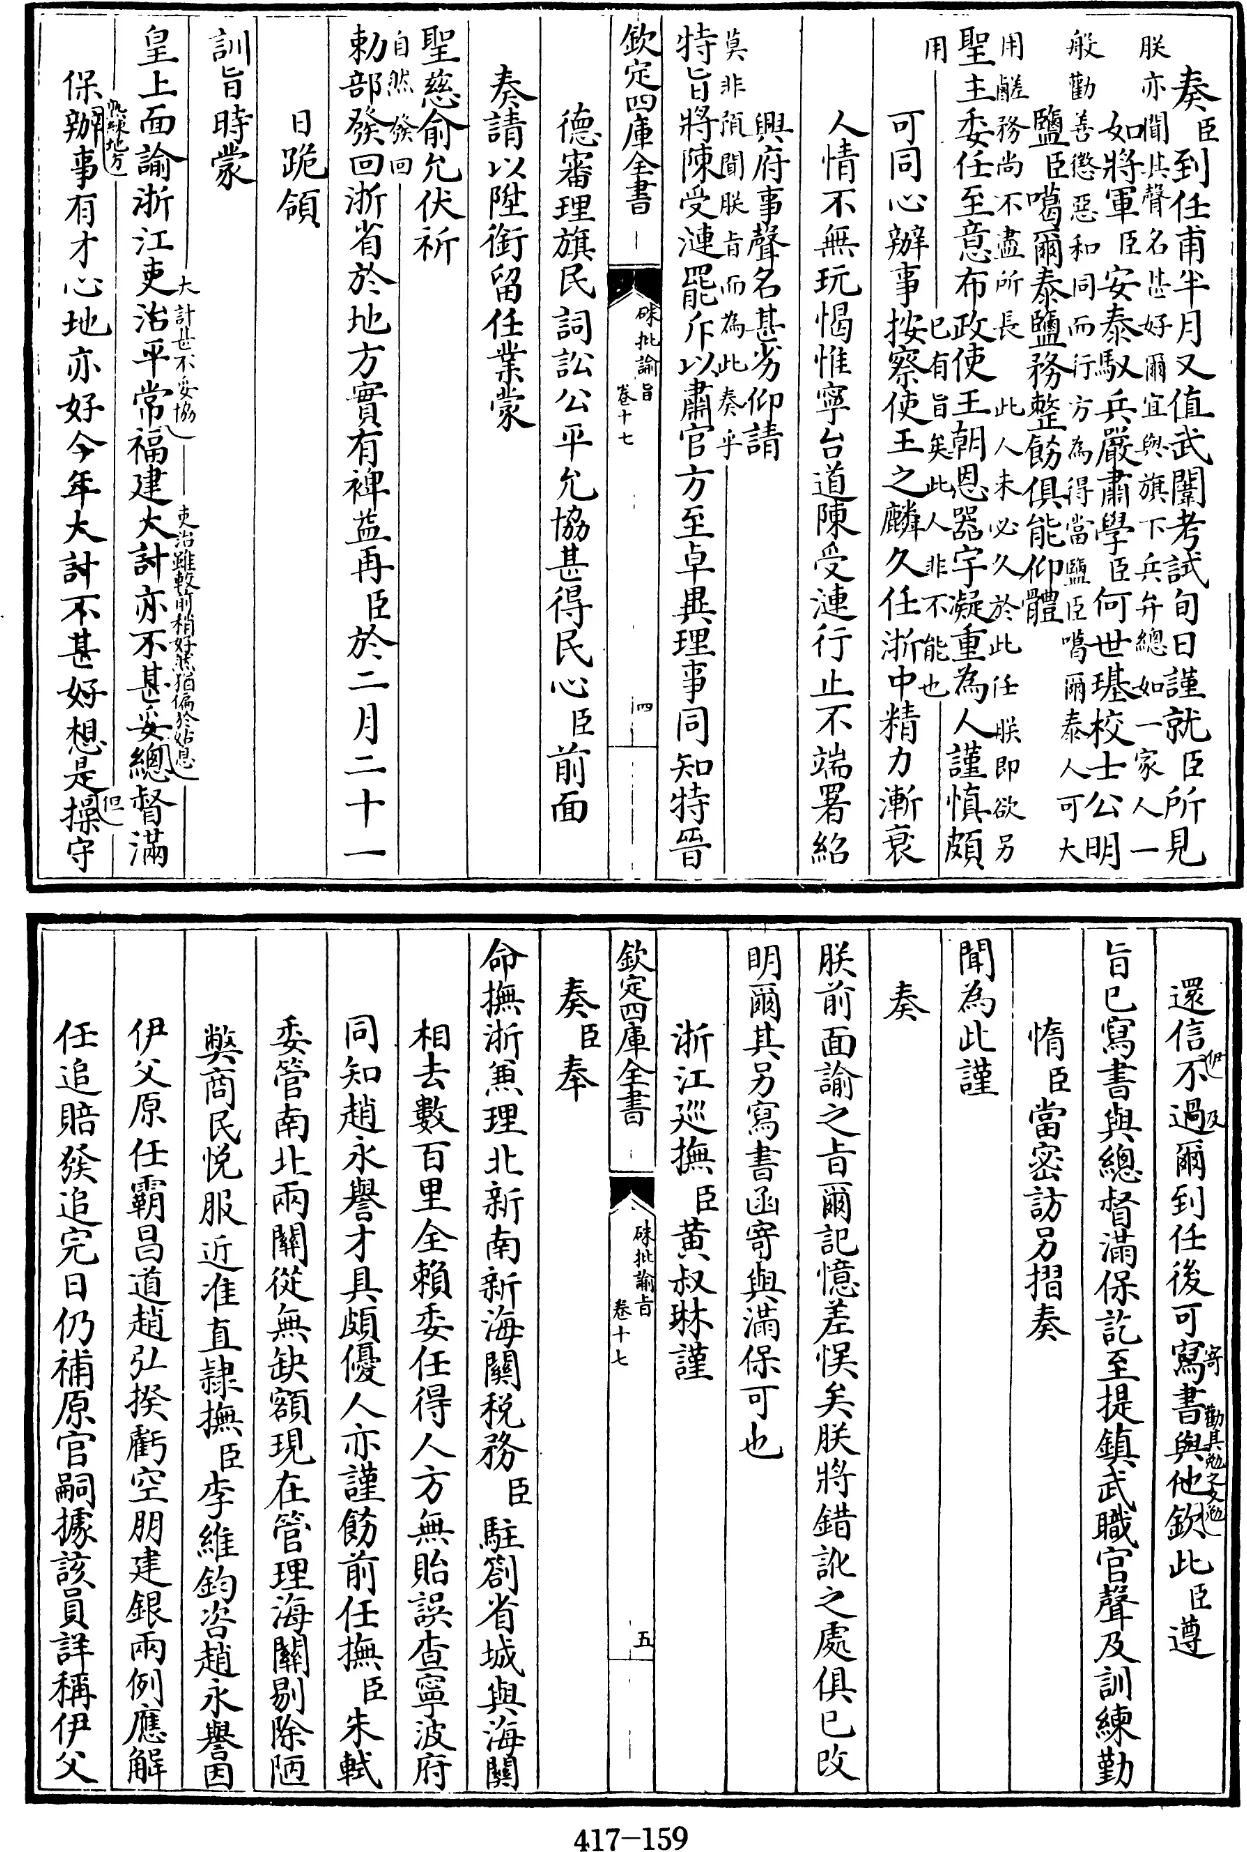 奏臣到任甫半月又值武闈考試旬日謹就臣所見
朕亦聞其聲名甚好爾宜與旗下兵弁總如一家人一
如將軍臣安泰馭兵嚴肅學臣何世璂校士公明
般勸善懲惡和同而行方為得當鹽臣噶爾泰人可大
鹽臣噶爾泰鹽務整飭俱能仰體
用鹺務尚不盡所長 此人未必久於此任朕即欲另
聖主委任至意布政使王朝恩器宇凝重為人謹慎頗
用 已有旨矣此人非不能也
可同心辦事按察使王之麟久任浙中精力漸衰
人情不無玩愒惟寧台道陳受漣行止不端署紹
興府事聲名甚劣仰請
莫非聞朕旨而為此奏乎
特旨將陳受漣罷斥以肅官方至卓異理事同知特晉
欽定四庫全書 硃批諭旨 卷十七 四
德審理旗民詞訟公平允協甚得民心臣前面
奏請以陞銜留任業蒙
聖慈俞允伏祈
自然發回
勅部發回浙省於地方實有裨益再臣於二月二十一
日跪領
訓旨時蒙
大計甚不妥協 吏治雖較前稍好然猶偏於姑息
皇上面諭浙江吏治平常福建大計亦不甚妥總督滿
練地方 但
保辦事有才心地亦好今年大計不甚好想是操守
伊 及 寄 勸其勉之又勉
還信不過爾到任後可寫書與他欽此臣遵
旨已寫書與總督滿保訖至提鎮武職官聲及訓練勤
惰臣當密訪另摺奏
聞為此謹
奏
朕前面諭之旨爾記憶差悮矣朕將錯訛之處俱已改
明爾其另寫書函寄與滿保可也
浙江廵撫臣黃叔琳謹
欽定四庫全書 硃批諭旨 卷十七 五
奏臣奉
命撫浙兼理北新南新海關稅務臣駐劄省城與海關
相去數百里全賴委任得人方無貽誤查寧波府
同知趙永譽才具頗優人亦謹飭前任撫臣朱軾
委管南北兩關從無缺額現在管理海關剔除陋
弊商民悅服近准直隸撫臣李維鈞咨趙永譽因
伊父原任霸昌道趙弘揆虧空朋建銀兩例應解
任追賠發追完日仍補原官嗣據該員詳稱伊父
417-159